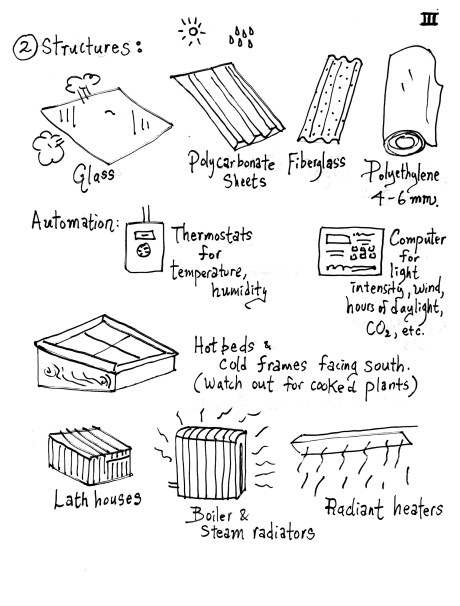 III
② Structures:
Glass
Polycarbonate
Sheets
Fiberglass
Polyethylene
4-6 mm.
Automation:
Thermostats
for
temperature,
humidity
Computer
for
light
intensity, wind,
hours of daylight,
CO₂, etc.
Hotbeds &
Cold frames facing south.
(Watch out for cooked plants)
Lath houses
Boiler &
Steam radiators
Radiant heaters